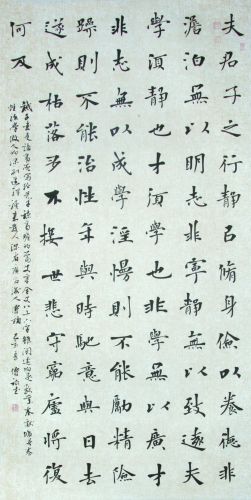 夫君子之行靜以脩身儉以養德非
澹泊無以明志非寧靜無以致遠夫
學須靜也才須學也非學無以廣才
非志無以成學淫慢則不能勵精險
躁則不能治性年與時馳意與日去
遂成枯落多不接世悲守窮廬將復
何及
誡子書是諸葛亮寫給兒子諸葛瞻的